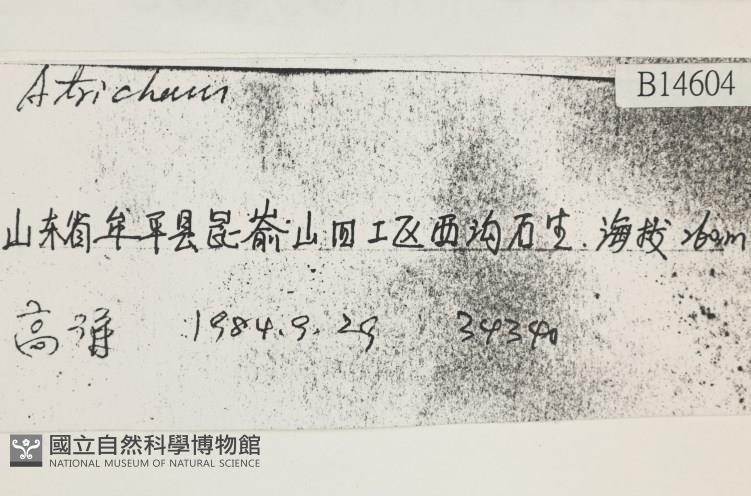 Atrichum
B14604
山东省牟平县昆嵛山四工区西沟石生.海拔260m
高谦 1984.9.29 34340
國立自然科學博物館
NATIONAL MUSEUM OF NATURAL SCIENCE